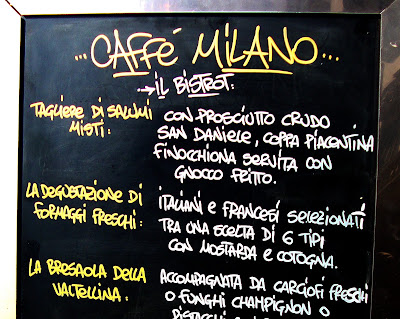 ...CAFFÉ MILANO...
→IL BISTROT:
TAGLIERE DI SALUMI
MISTI:
CON PROSCIUTTO CRUDO
SAN DANIELE, COPPA PIACENTINA
FINOCCHIONA SERVITA CON
GNOCCO FRITTO.
LA DEGUSTAZIONE DI
FORMAGGI FRESCHI:
ITALIANI E FRANCESI SELEZIONATI
TRA UNA SCELTA DI 6 TIPI
CON MOSTARDA E COTOGNA.
LA BRESAOLA DELLA
VALTELLINA:
ACCOMPAGNATA DA CARCIOFI FRESCHI
O FUNGHI CHAMPIGNON O